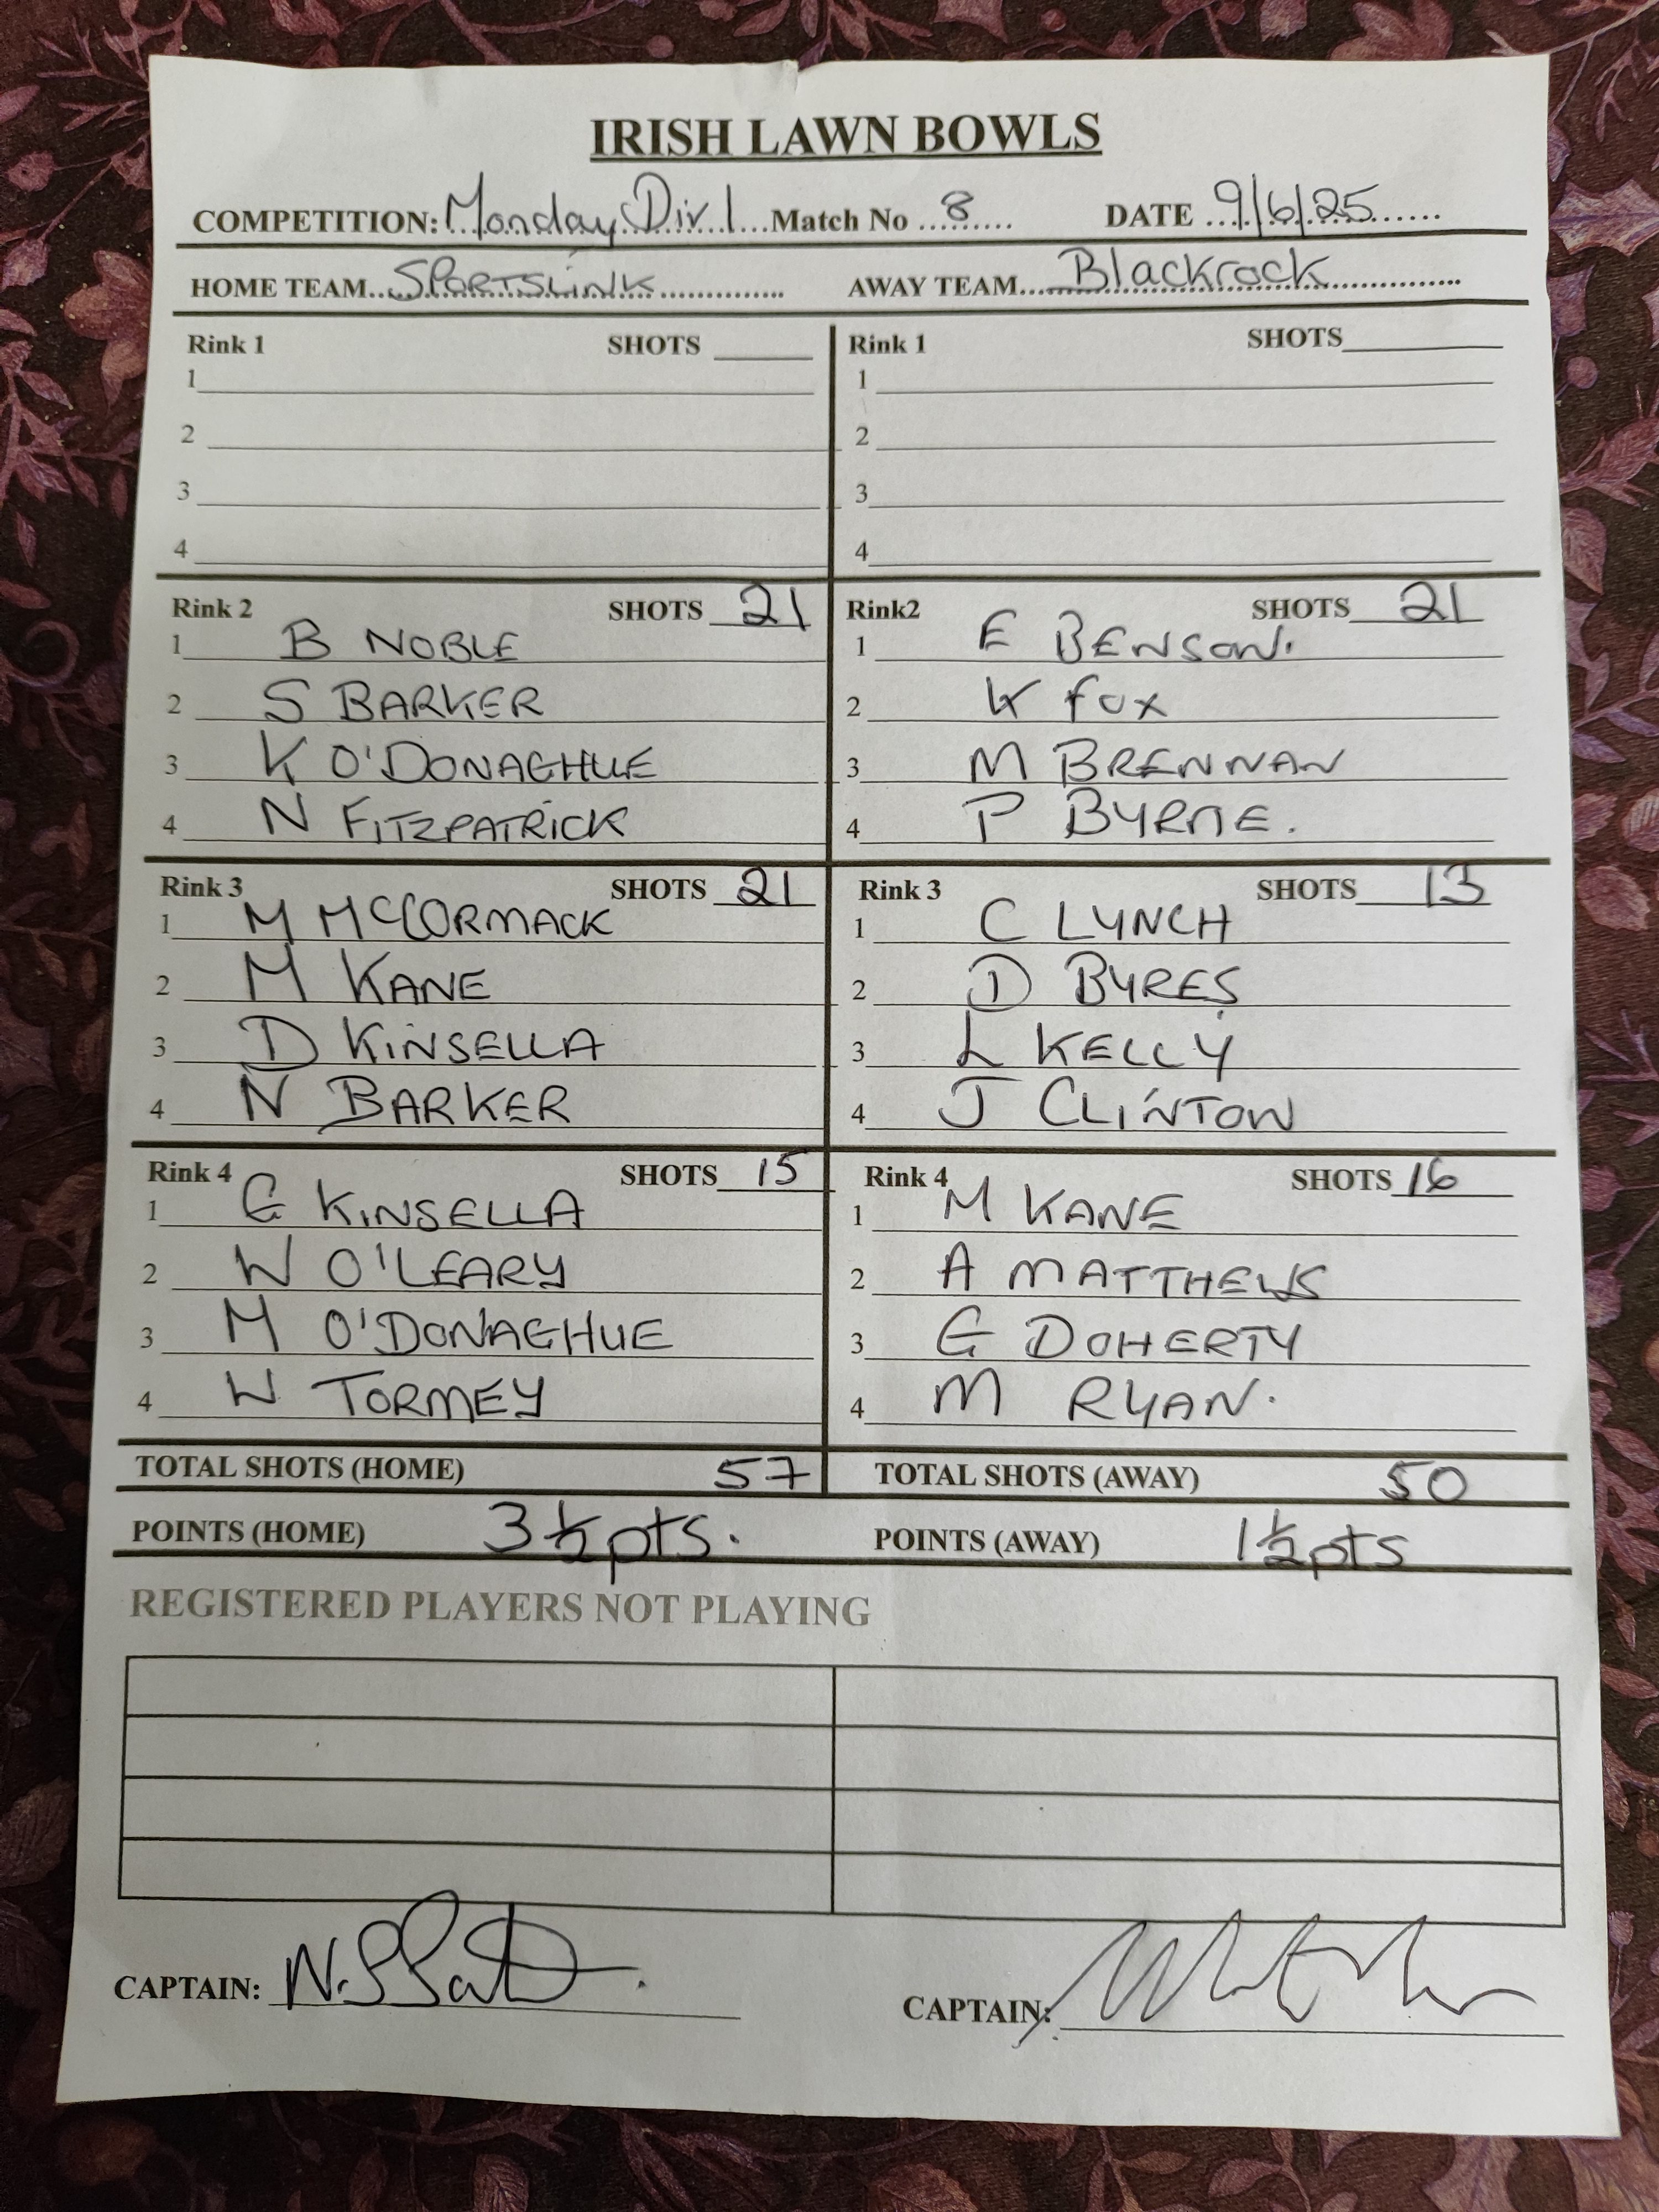 IRISH LAWN BOWLS
COMPETITION: Monday Div 1 Match No 8 DATE 9/6/25
HOME TEAM SPORTSLINK AWAY TEAM Blackrock
Rink 1 SHOTS
1
2
3
4
Rink 1 SHOTS
1
2
3
4
Rink 2 SHOTS 21
1 B NOBLE
2 S BARKER
3 K O'DONAGHUE
4 N FITZPATRICK
Rink2 SHOTS 21
1 E BENSON.
2 K FOX
3 M BRENNAN
4 P BYRNE.
Rink 3 SHOTS 21
1 M McCORMACK
2 M KANE
3 D KINSELLA
4 N BARKER
Rink 3 SHOTS 13
1 C LYNCH
2 D BYRES
3 L KELLY
4 J CLINTON
Rink 4 SHOTS 15
1 G KINSELLA
2 W O'LEARY
3 M O'DONAGHUE
4 W TORMEY
Rink 4 SHOTS 16
1 M KANE
2 A MATTHEWS
3 G DOHERTY
4 M RYAN.
TOTAL SHOTS (HOME) 57 TOTAL SHOTS (AWAY) 50
POINTS (HOME) 3½pts. POINTS (AWAY) 1½pts
REGISTERED PLAYERS NOT PLAYING
CAPTAIN: CAPTAIN: